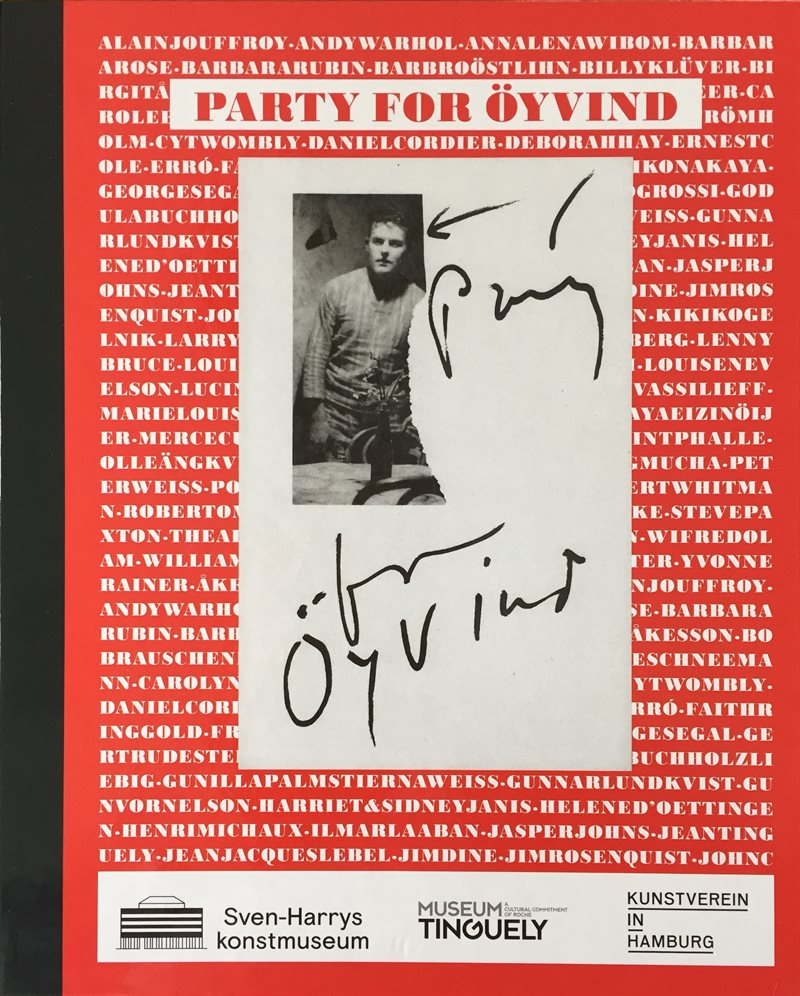 ALAINJOUFFROY·ANDYWARHOL·ANNALENAWIBOM·BARBAR
AROSE·BARBARARUBIN·BARBROÖSTLIHN·BILLYKLÜVER·BI
RGITÅ EER·CA
PARTY FOR ÖYVIND
ROLEE RÖMH
OLM·CYTWOMBLY·DANIELCORDIER·DEBORAHHAY·ERNESTC
OLE·ERRÓ·FA IKONAKAYA·
GEORGESEGA OGROSSI·GOD
ULABUCHHO WEISS·GUNNA
RLUNDKVIST EYJANIS·HEL
ENED'OETTI AN·JASPERJ
OHNS·JEANT DINE·JIMROS
ENQUIST·JOH N·KIKIKOGE
LNIK·LARRY BERG·LENNY
BRUCE·LOUI LOUISENEV
ELSON·LUCIN VASSILIEFF·
MARIELOUIS AYAEIZINÖIJ
ER·MERCECU INTPHALLE·
OLLEÄNGKV GMUCHA·PET
ERWEISS·PO ERTWHITMA
N·ROBERTOM KE·STEVEPA
XTON·THEAE N·WIFREDOL
AM·WILLIAM TER·YVONNE
RAINER·ÅKE NJOUFFROY·
ANDYWARHO SE·BARBARA
RUBIN·BARB ÅKESSON·BO
BRAUSCHEN ESCHNEEMA
NN·CAROLYN YTWOMBLY·
DANIELCORD RRÓ·FAITHR
INGGOLD·FR GESEGAL·GE
RTRUDESTE BUCHHOLZLI
EBIG·GUNILLAPALMSTIERNAWEISS·GUNNARLUNDKVIST·GU
NVORNELSON·HARRIET&SIDNEYJANIS·HELENED'OETTINGE
N·HENRIMICHAUX·ILMARLAABAN·JASPERJOHNS·JEANTING
UELY·JEANJACQUESLEBEL·JIMDINE·JIMROSENQUIST·JOHNC
Party
for
Öyvind
Sven-Harrys
konstmuseum
MUSEUM
A CULTURAL COMMITMENT
OF ROCHE
TINGUELY
KUNSTVEREIN
IN
HAMBURG